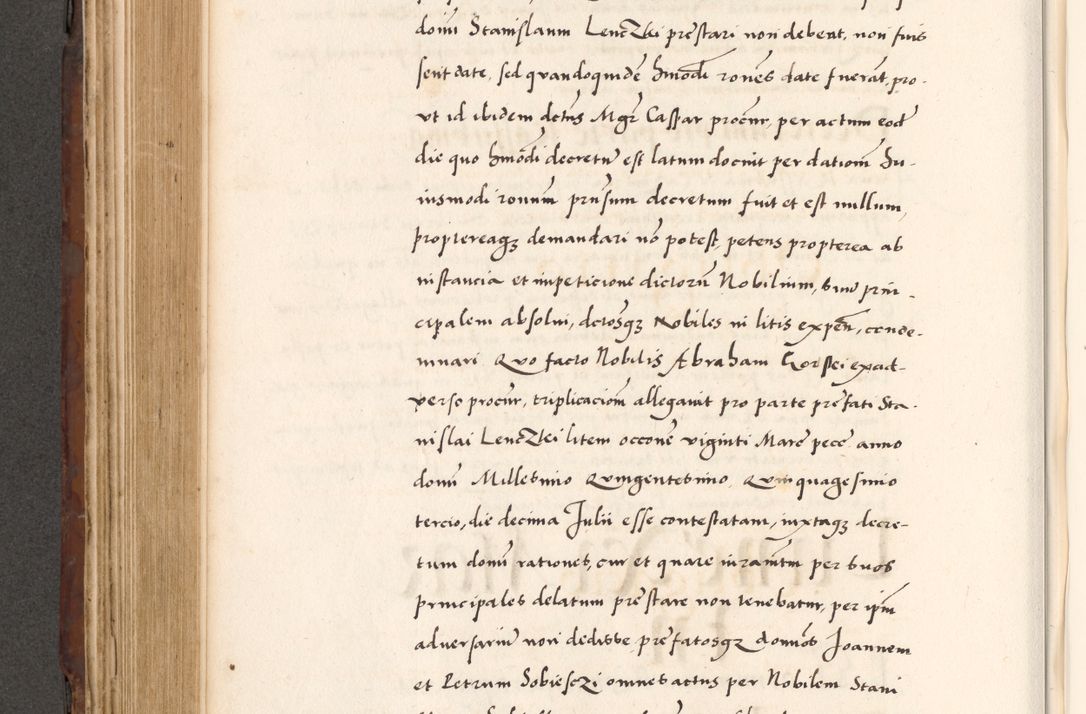 domi Stanislaum Lenczki prestari non deberet, non fuis
sent date, sed quandoquidē hmōdi rones date fuerāt, pro-
ut id ibidem dctūs Mgr Caspar procur, per actum eod
die quo hmōdi decretū est latum docuit per dationē hu-
iusmodi ronum prnsum decretum fuit et est nullum,
proptereaqz demandari nō potest, petens propterea ab
instancia et impeticione dictorū Nobilium, suū prin-
cipalem absolui, dctosqz Nobiles in litis expen, conde-
mnari. Quo facto Nobilis Abraham Gorskei exad-
verso procur, triplicaciom allegauit pro parte prefati Sta-
nislai Lenczki litem occone viginti Marc pecc anno
domi Millesimo Quingentesimo Quinquagesimo
tercio, die decima Julii esse contestatam, iuxtaqz decre-
tum domi rationes, cur et quare iuramtm per suos
principales delatum prestare non tenebatur, per ipm
adversariū non dedisse prefatosqz domos Joannem
et Petrum Sobiesczi omnes actus per Nobilem Stani